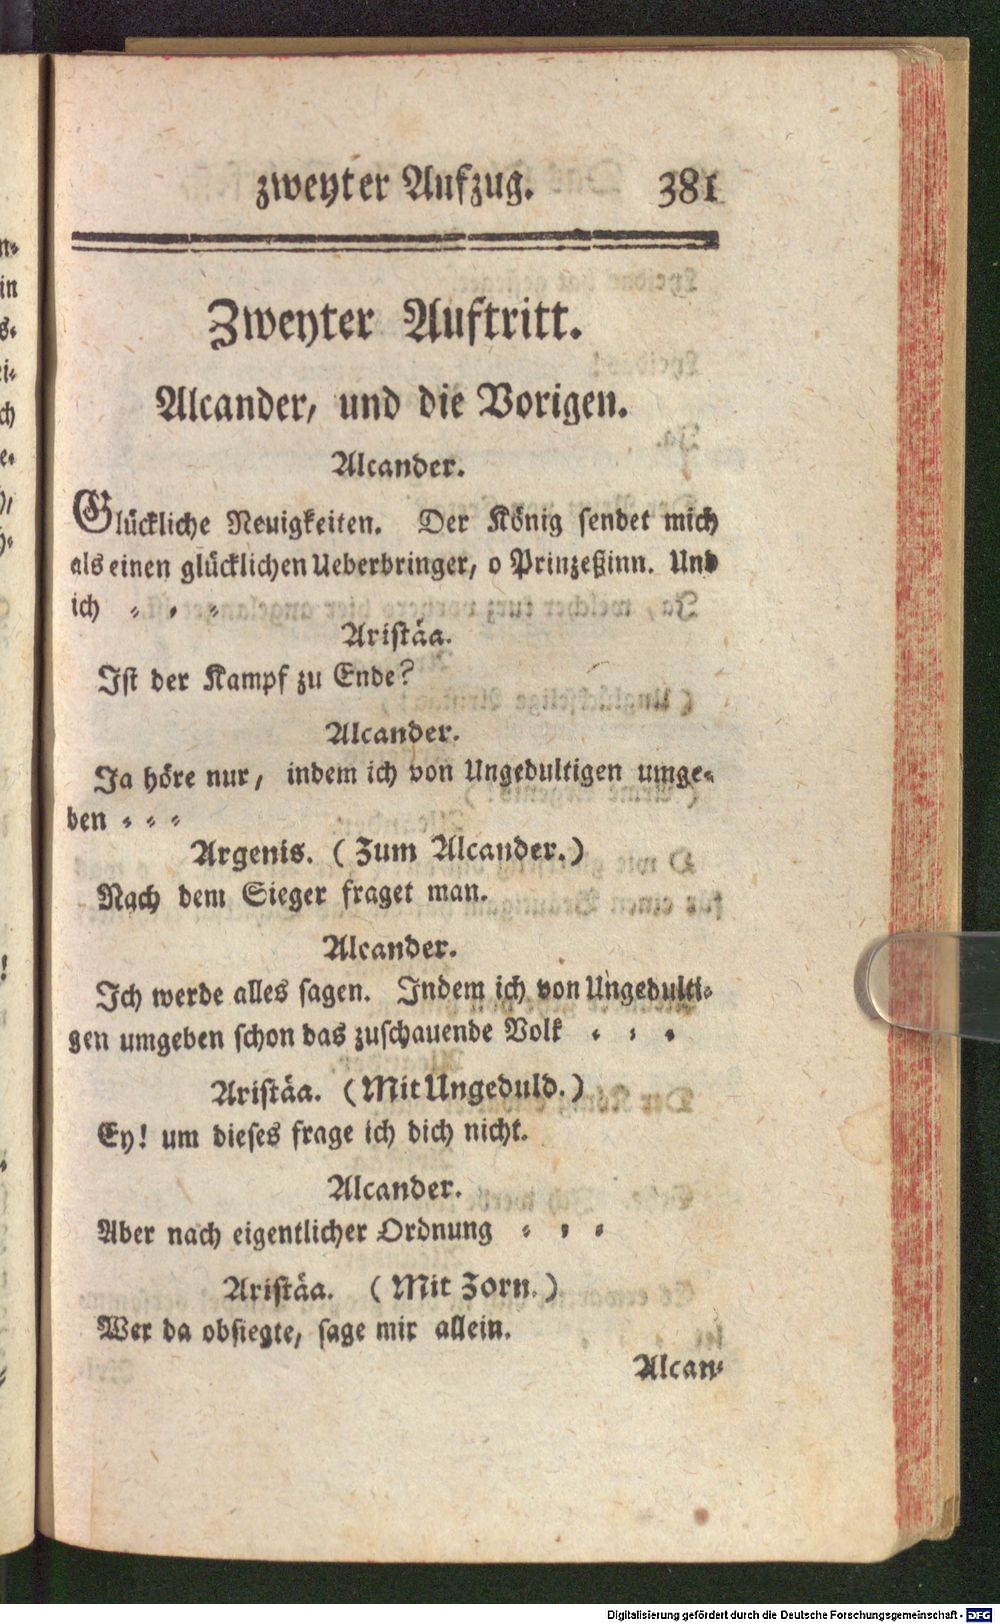 zweyter Aufzug. 381
Zweyter Auftritt.
Alcander, und die Vorigen.
Alcander.
Glückliche Neuigkeiten. Der König sendet mich
als einen glücklichen Ueberbringer, o Prinzeßinn. Und
ich = = =
Aristäa.
Ist der Kampf zu Ende?
Alcander.
Ja höre nur, indem ich von Ungedultigen umge=
ben = = =
Argenis. (Zum Alcander.)
Nach dem Sieger fraget man.
Alcander.
Ich werde alles sagen. Indem ich von Ungedulti=
gen umgeben schon das zuschauende Volk = = =
Aristäa. (Mit Ungeduld.)
Ey! um dieses frage ich dich nicht.
Alcander.
Aber nach eigentlicher Ordnung = = =
Aristäa. (Mit Zorn.)
Wer da obsiegte, sage mir allein.
Alcan=
Digitalisierung gefördert durch die Deutsche Forschungsgemeinschaft - DFG